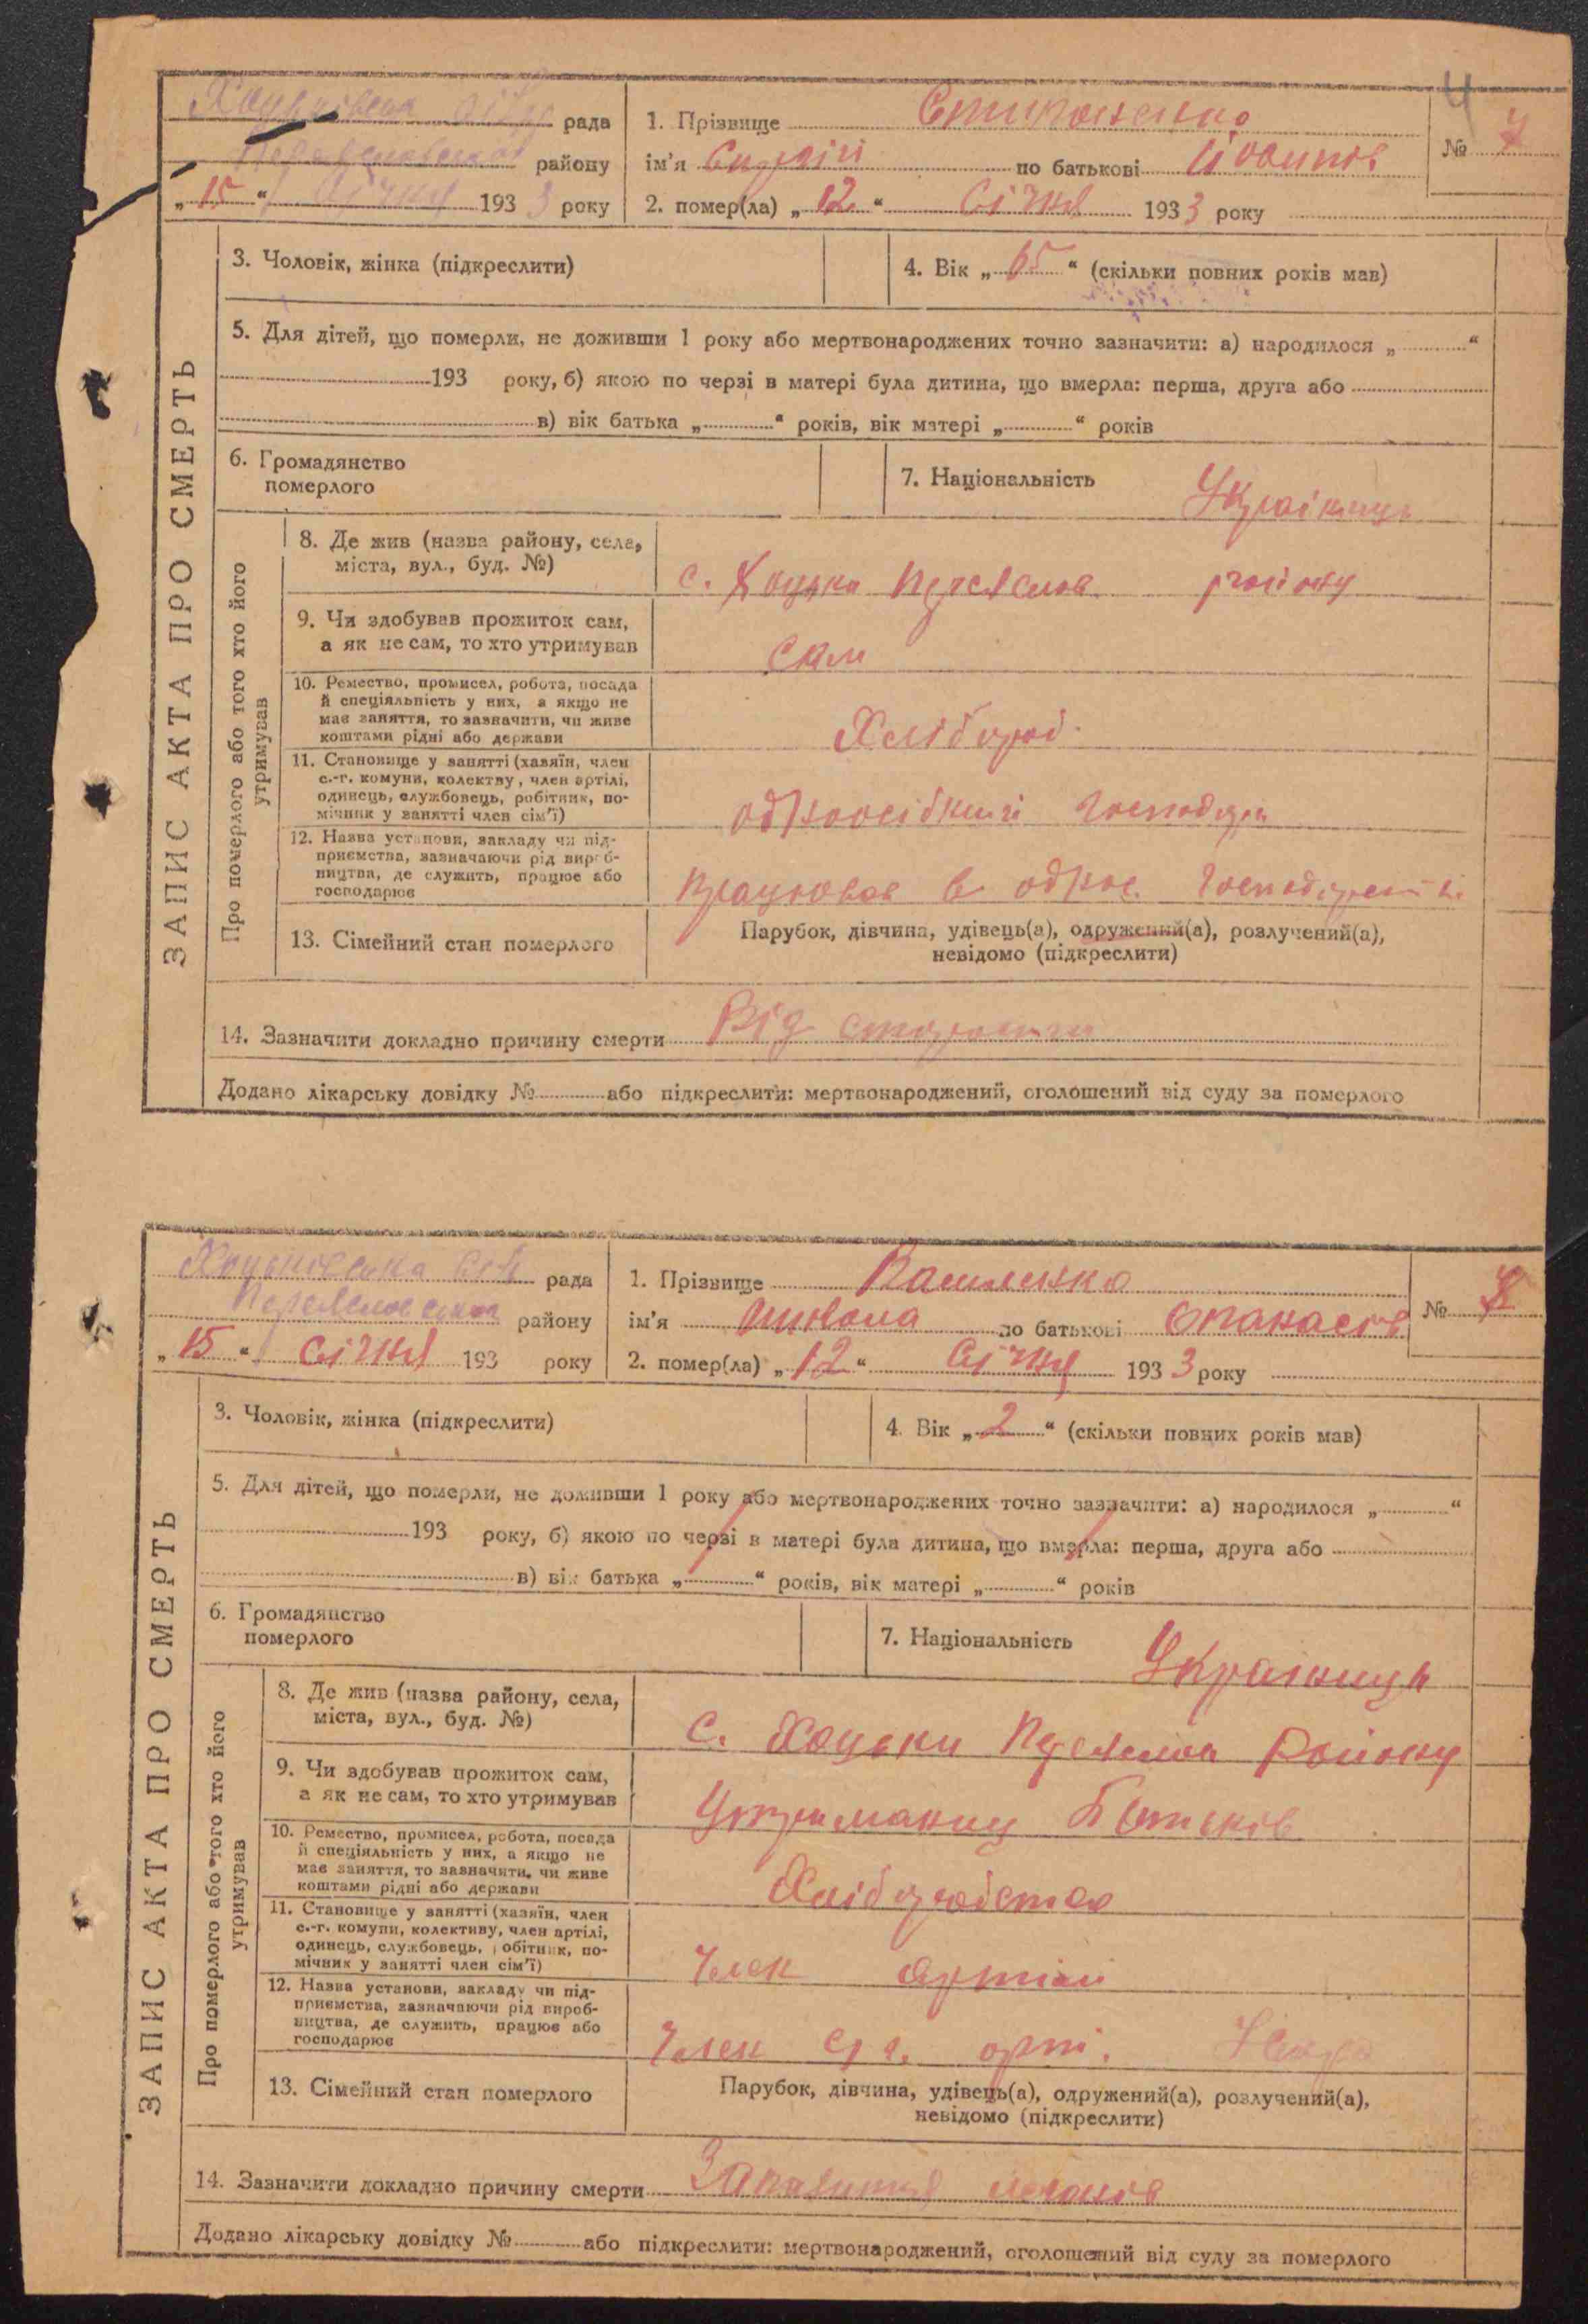 4
рада
району
„ 15 “ Січня 193 3 року
1. Прізвище
ім'я по батькові
2. помер(ла) „ 12 “ Січня 193 3 року
№
3. Чоловік, жінка (підкреслити)
4. Вік „ 65 “ (скільки повних років мав)
5. Для дітей, що померли, не доживши 1 року або мертвонароджених точно зазначити: а) народилося „ “
193 року, б) якою по черзі в матері була дитина, що вмерла: перша, друга або
в) вік батька „ “ років, вік матері „ “ років
6. Громадянство
померлого
7. Національність Українець
ЗАПИС АКТА ПРО СМЕРТЬ
Про померлого або того хто його
утримував
8. Де жив (назва району, села,
міста, вул., буд. №)
с. Хоцьки Переяслов. району
9. Чи здобував прожиток сам,
а як не сам, то хто утримував
Сам
10. Ремество, промисел, робота, посада
й спеціяльність у них, а якщо не
має заняття, то зазначити, чи живе
коштами рідні або держави
Хлібороб
11. Становище у занятті (хазяїн, член
с.-г. комуни, колектву, член артілі,
одинець, службовець, робітник, по-
мічник у занятті член сім'ї)
12. Назва установи, закладу чи під-
приємства, зазначаючи рід вироб-
ництва, де служить, працює або
господарює
працював в
13. Сімейний стан померлого
Парубок, дівчина, удівець(а), одружений(а), розлучений(а),
невідомо (підкреслити)
14. Зазначити докладно причину смерти Від старости
Додано лікарську довідку № або підкреслити: мертвонароджений, оголошений від суду за померлого
рада
району
„ 15 “ Січня 193 року
1. Прізвище Василенко
ім'я Микола по батькові Опанасів
2. помер(ла) „ 12 “ Січня 193 3 року
№
3. Чоловік, жінка (підкреслити)
4. Вік „ 2 “ (скільки повних років мав)
5. Для дітей, що померли, не доживши 1 року або мертвонароджених точно зазначити: а) народилося „ “
193 року, б) якою по черзі в матері була дитина, що вмерла: перша, друга або
в) вік батька „ “ років, вік матері „ “ років
6. Громадянство
померлого
7. Національність Українець
ЗАПИС АКТА ПРО СМЕРТЬ
Про померлого або того хто його
утримував
8. Де жив (назва району, села,
міста, вул., буд. №)
с. Хоцьки району
9. Чи здобував прожиток сам,
а як не сам, то хто утримував
Утриманец Батьків
10. Ремество, промисел, робота, посада
й спеціяльність у них, а якщо не
має заняття, то зазначити, чи живе
коштами рідні або держави
11. Становище у занятті (хазяїн, член
с.-г. комуни, колективу, член артілі,
одинець, службовець, робітник, по-
мічник у занятті член сім'ї)
Член Артілі
12. Назва установи, закладу чи під-
приємства, зазначаючи рід вироб-
ництва, де служить, працює або
господарює
Член с. г. арт.
13. Сімейний стан померлого
Парубок, дівчина, удівець(а), одружений(а), розлучений(а),
невідомо (підкреслити)
14. Зазначити докладно причину смерти Запалення легенів
Додано лікарську довідку № або підкреслити: мертвонароджений, оголошений від суду за померлого